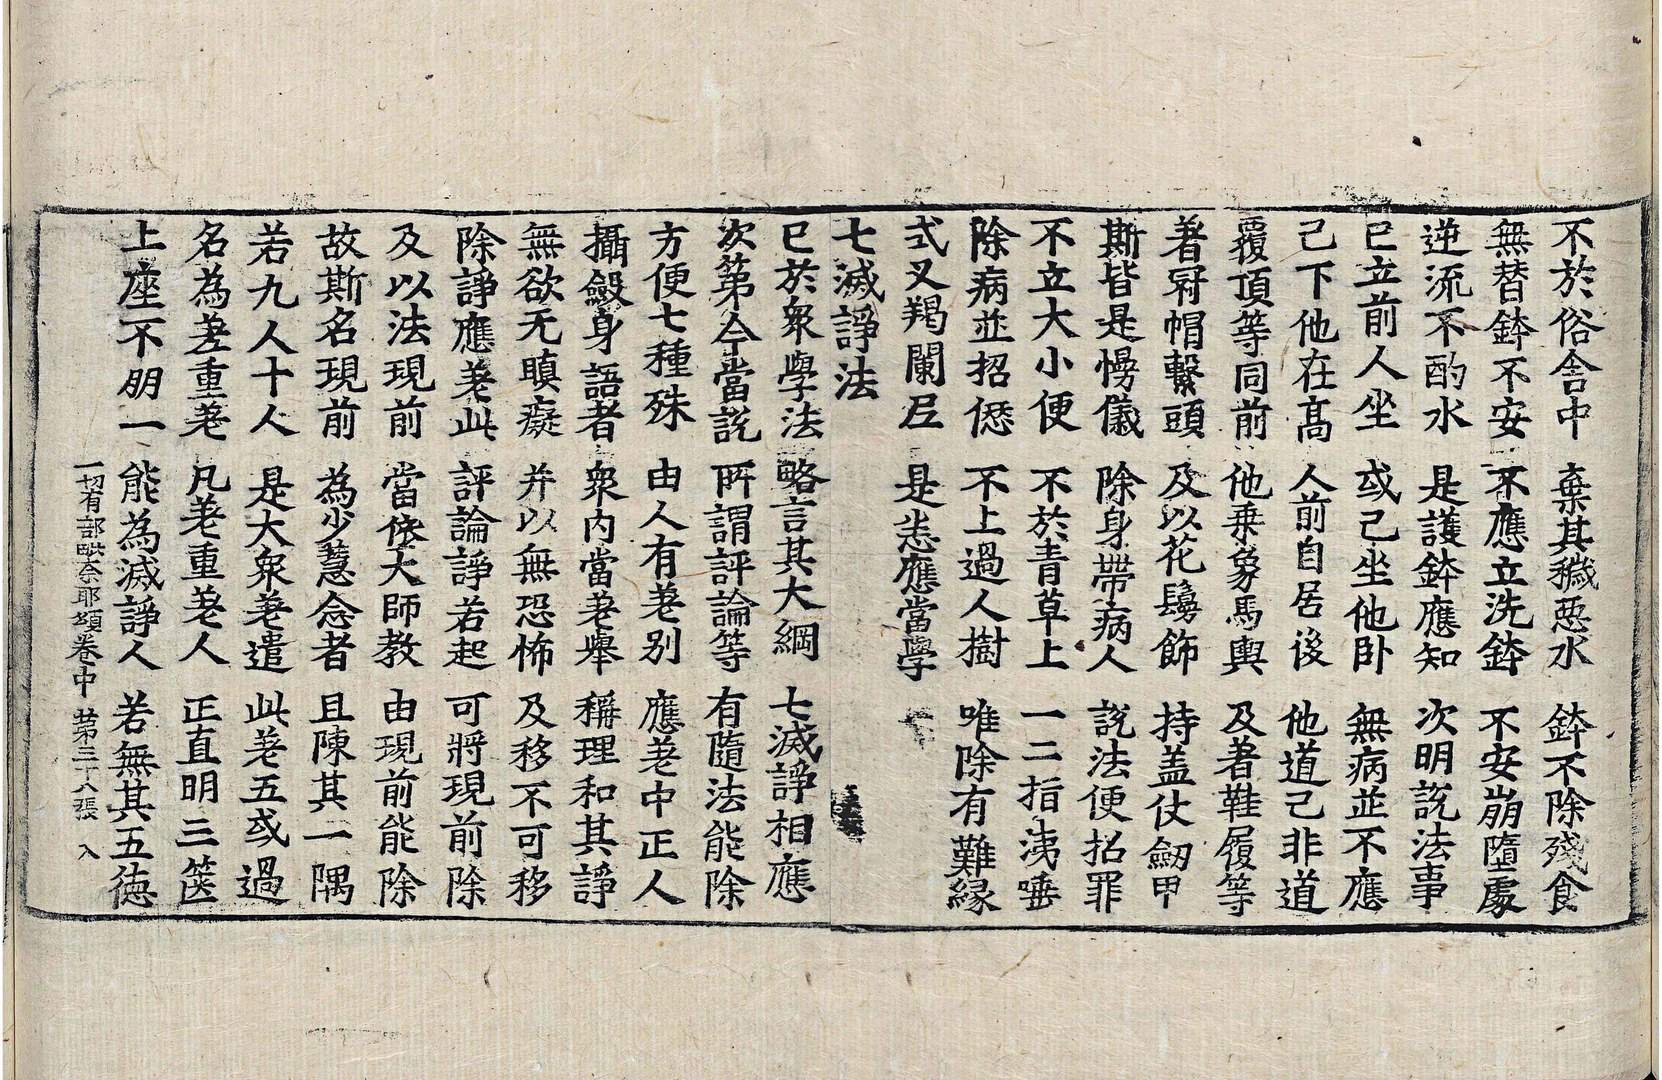 不於俗舍中　棄其穢惡水　鉢不除殘食
無替鉢不安　不應立洗鉢　不安崩墮處
逆流不酌水　是護鉢應知　次明說法事
已立前人坐　或己坐他臥　無病並不應
己下他在高　人前自居後　他道己非道
覆頂等同前　他乗象馬輿　及著鞋履等
著冠帽繫頭　及以花鬘飾　持盖仗劒甲
斯皆是慢儀　除身帶病人　說法便招罪
不立大小便　不於青草上　一二指洟唾
除病並招愆　不上過人樹　唯除有難縁
式叉羯闌尼　是恙應當學
七滅諍法
已於衆學法　略言其大綱　七滅諍相應
次第今當說　所謂評論等　有隨法能除
方便七種殊　由人有差別　應差中正人
攝斂身語者　衆内當差舉　稱理和其諍
無欲无瞋癡　并以無恐怖　及移不可移
除諍應差此　評論諍若起　可將現前除
及以法現前　當依大師教　由現前能除
故斯名現前　為少慧念者　且陳其一隅
若九人十人　是大衆差遣　此差五或過
名為差重差　凡差重差人　正直明三篋
上座不朋一　能為滅諍人　若無其五德
一切有部毗奈耶頌卷中　苐三十八張　入